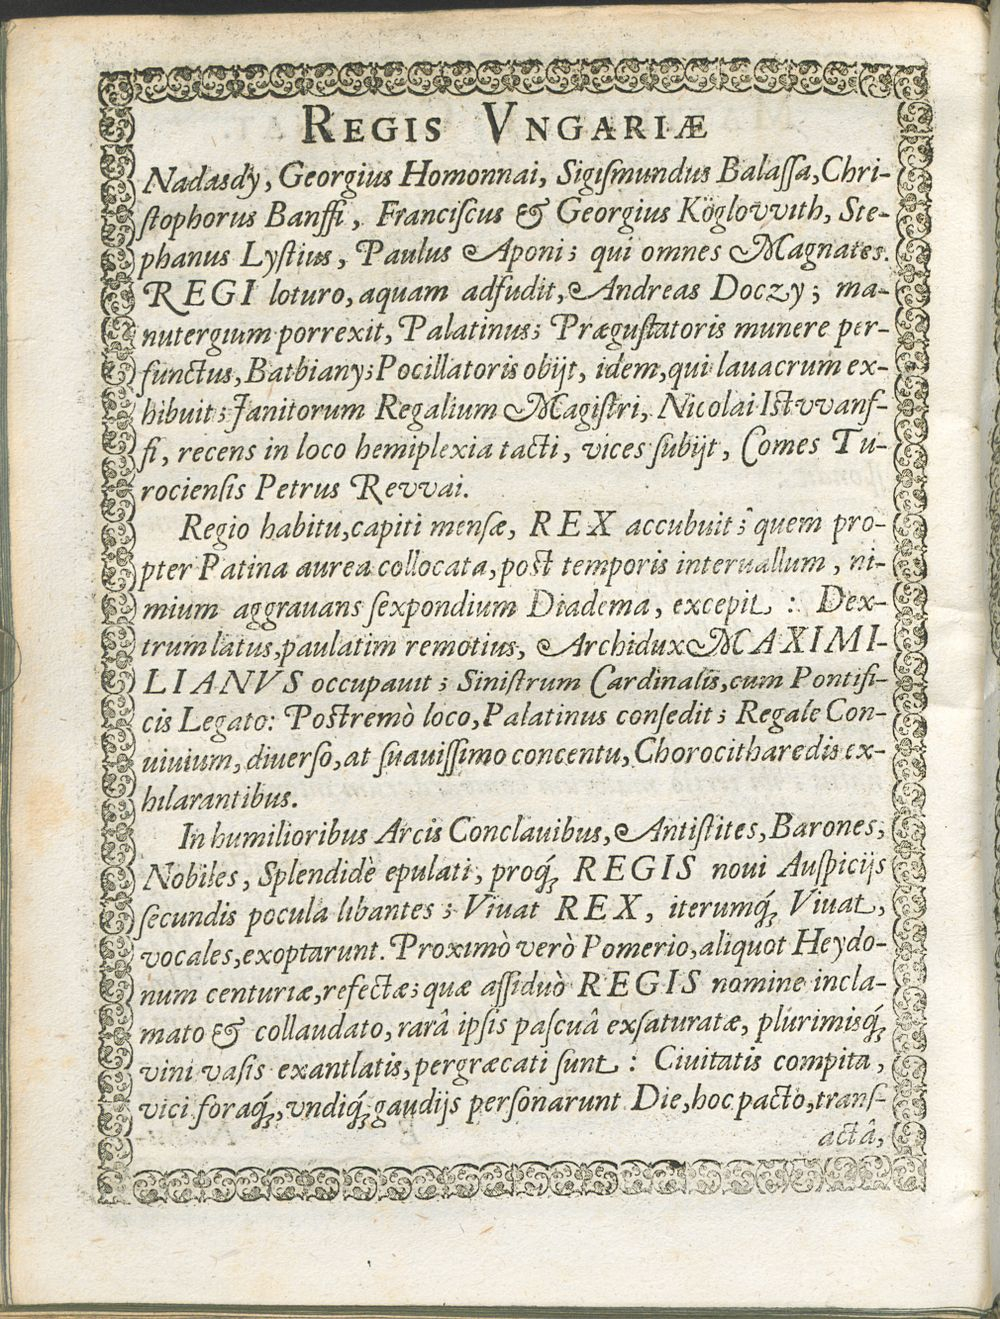 REGIS VNGARIÆ
Nadasdÿ, Georgius Homonnai, Sigiſmundus Balaſſa, Chri-
ſtophorus Banffi, Franciſcus & Georgius Köglovvith, Ste-
phanus Lyſtius, Paulus Aponi; qui omnes Magnates.
REGI loturo, aquam adfudit, Andreas Doczy; ma-
nutergium porrexit, Palatinus; Præguſtatoris munere per-
functus, Batbiany; Pocillatoris obijt, idem, qui lauacrum ex-
hibuit; Janitorum Regalium Magiſtri, Nicolai Iſtvvanf-
fi, recens in loco hemiplexia tacti, vices ſubijt, Comes Tu-
rocienſis Petrus Revvai.
Regio habitu, capiti menſæ, REX accubuit; quem pro-
pter Patina aurea collocata, poſt temporis interuallum, ni-
mium aggrauans ſexpondium Diadema, excepit: Dex-
trum latus, paulatim remotius, Archidux MAXIMI-
LIANVS occupauit; Siniſtrum Cardinalis, cum Pontifi-
cis Legato: Poſtremò loco, Palatinus conſedit; Regale Con-
uiuium, diuerſo, at ſuauiſſimo concentu, Chorocitharedis ex-
hilarantibus.
In humilioribus Arcis Conclauibus, Antiſtites, Barones,
Nobiles, Splendidè epulati, proq́; REGIS noui Auſpicijs
ſecundis pocula libantes; Viuat REX, iterumq́; Viuat,
vocales, exoptarunt. Proximò verò Pomerio, aliquot Heydo-
num centuriæ, refectæ; quæ aſſiduò REGIS nomine incla-
mato & collaudato, rarâ ipſis paſcuâ exſaturatæ, plurimisq́;
vini vaſis exantlatis, pergræcati ſunt: Ciuitatis compita,
vici foraq́;, vndiq́; gaudijs perſonarunt Die, hoc pacto, tranſ-
actâ,